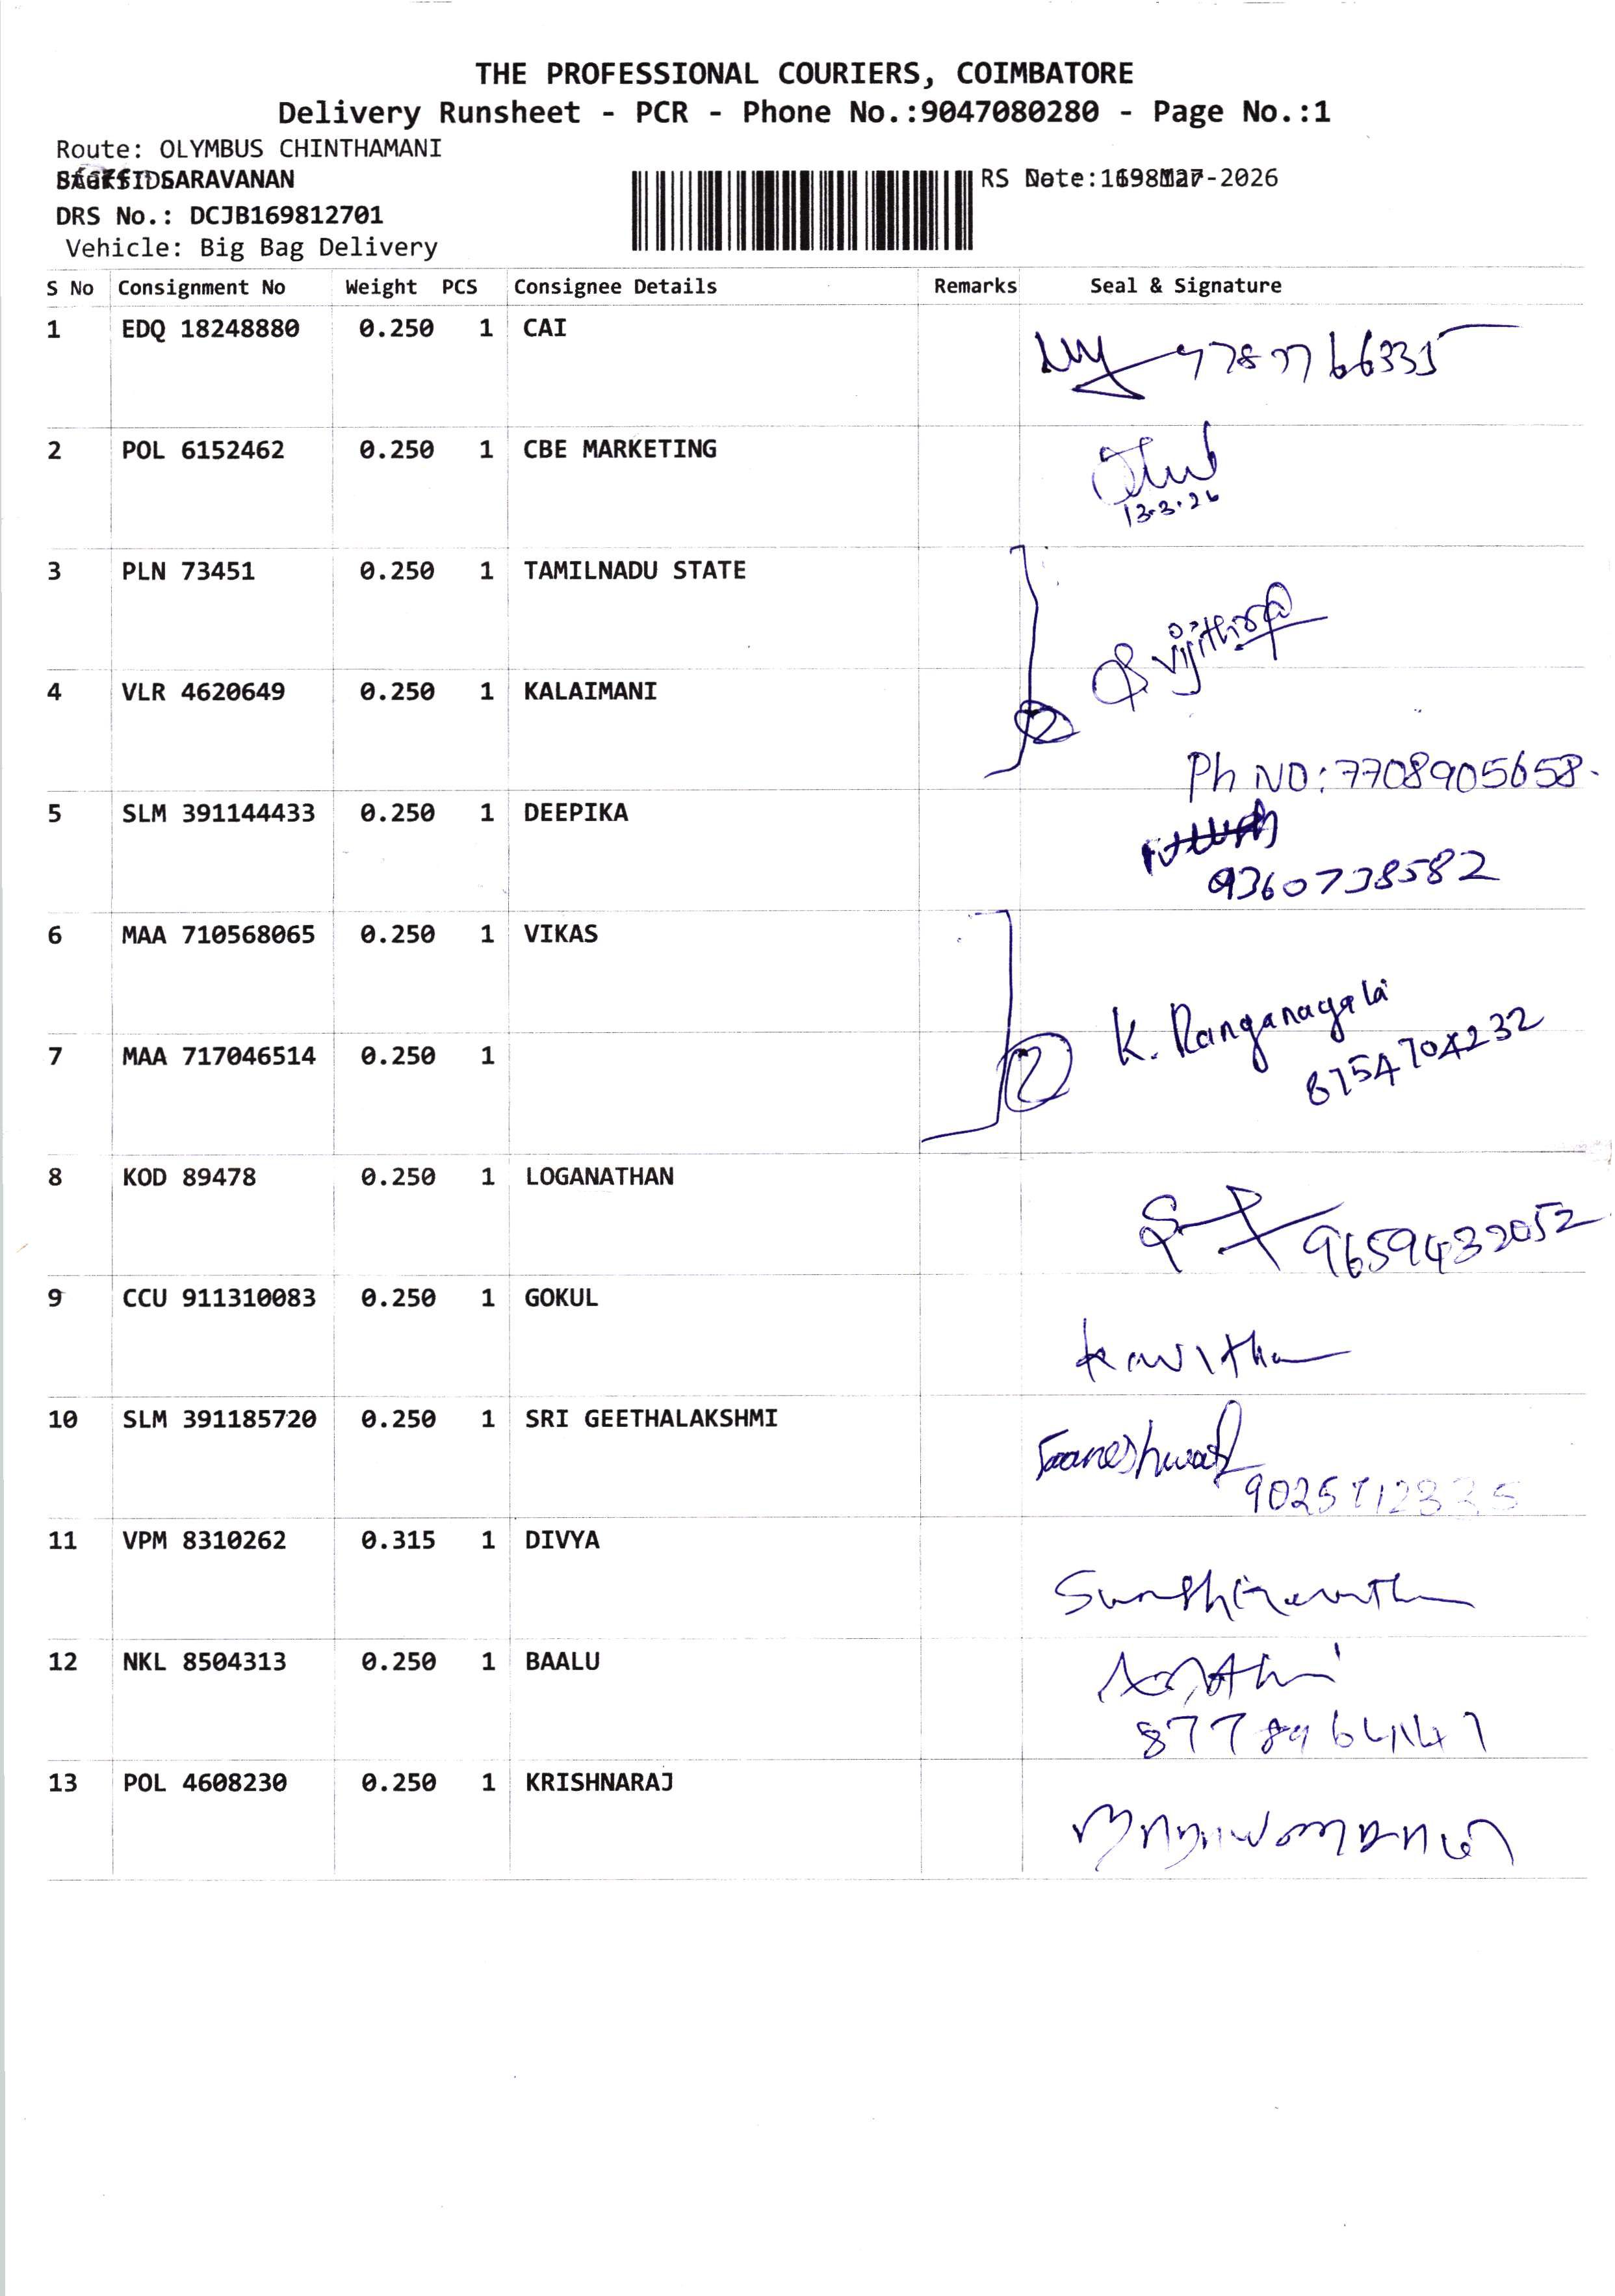 THE PROFESSIONAL COURIERS, COIMBATORE
Delivery Runsheet - PCR - Phone No.:9047080280 - Page No.:1
Route: OLYMBUS CHINTHAMANI
SARAVANAN
RS -2026
DRS No.: DCJB169812701
Vehicle: Big Bag Delivery
S No Consignment No Weight PCS Consignee Details Remarks Seal & Signature
1 EDQ 18248880 0.250 1 CAI
2 POL 6152462 0.250 1 CBE MARKETING
13.3.26
3 PLN 73451 0.250 1 TAMILNADU STATE
4 VLR 4620649 0.250 1 KALAIMANI
2
Ph NO: 7708905658.
5 SLM 391144433 0.250 1 DEEPIKA
9360738582
6 MAA 710568065 0.250 1 VIKAS
K. Ranganayaki
7 MAA 717046514 0.250 1
2 8754704232
8 KOD 89478 0.250 1 LOGANATHAN
9659432052
9 CCU 911310083 0.250 1 GOKUL
Kavitha
10 SLM 391185720 0.250 1 SRI GEETHALAKSHMI
11 VPM 8310262 0.315 1 DIVYA
12 NKL 8504313 0.250 1 BAALU
13 POL 4608230 0.250 1 KRISHNARAJ